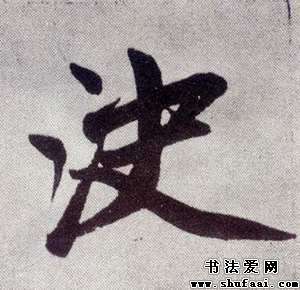 決
书法爱网
www.shufaai.com